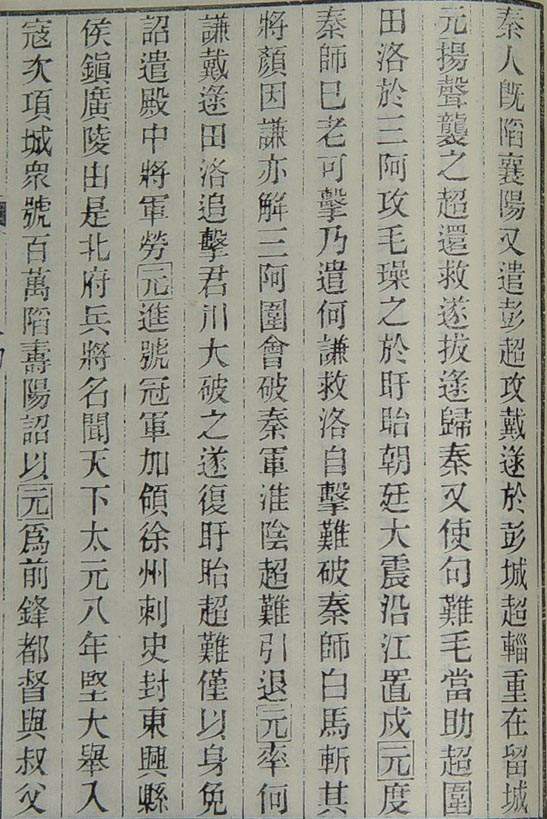 秦人旣陷襄陽又遣彭超攻戴遂於彭城超輜重在留城
元揚聲襲之超還救遂拔逢歸秦又使句難毛當助超圍
田洛於三阿攻毛璪之於盱眙朝廷大震沿江置戍元度
秦師已老可擊乃遣何謙救洛自擊難破秦師白馬斬其
將顏因謙亦解三阿圍會破秦軍淮陰超難引退元率何
謙戴逢田洛追擊君川大破之遂復盱眙超難僅以身免
詔遣殿中將軍勞元進號冠軍加領徐州刺史封東興縣
侯鎮廣陵由是北府兵將名聞天下太元八年堅大舉入
寇次項城衆號百萬陷壽陽詔以元爲前鋒都督與叔父